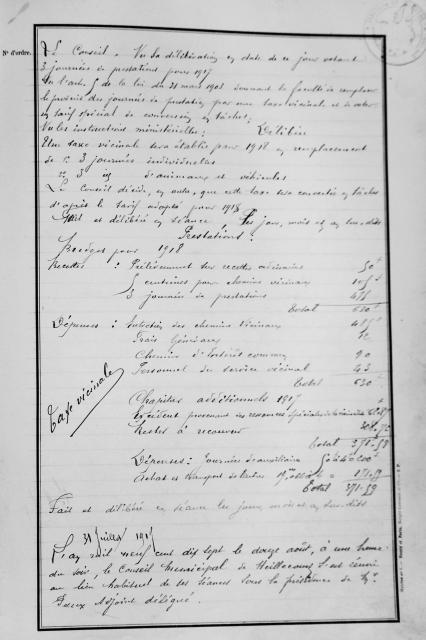 N° d'ordre.
Le Conseil, Vu la délibération en date de ce jour votant
3 journées de prestations pour 1917
Vu l'art. 5 de la loi du 31 mars 1903 donnant la faculté de remplacer
le produit des journées de prestation par une taxe vicinale et de voter
un tarif spécial de conversion en tâches;
Vu les instructions ministérielles; Délibère
Une taxe vicinale sera établie pour 1918 en remplacement
de 1° 3 journées individuelles
2° 3 id d'animaux et véhicules
Le Conseil décide, en outre, que cette taxe sera convertie en tâches
d'après le tarif adopté pour 1918
Fait et délibéré en séance, les jour, mois et an sus-dits
Prestations:
Budget pour 1918
Recettes : Prélèvement sur recettes ordinaires 50
5 centimes pour chemins vicinaux
3 journées de prestations
Total 630
Dépenses : Entretien des chemins vicinaux
Frais Généraux
Chemins d'Intérêt commun 90
Personnel du service vicinal 43
Total 630
Taxe vicinale
Chapitres additionnels 1917
Excédent provenant des ressources spéciales
Restes à recouvrer
Total 371-59
Dépenses: Journées d'auxiliaires
Achat et transport de
Total 371-59
Fait et délibéré en séance les jour, mois et an sus-dits
31 Juillet 1917
L'an mil neuf cent dix sept le douze août, à une heure
du soir, le Conseil Municipal de s'est réuni
au lieu habituel de ses séances sous la présidence de Mr.
Adjoint délégué.